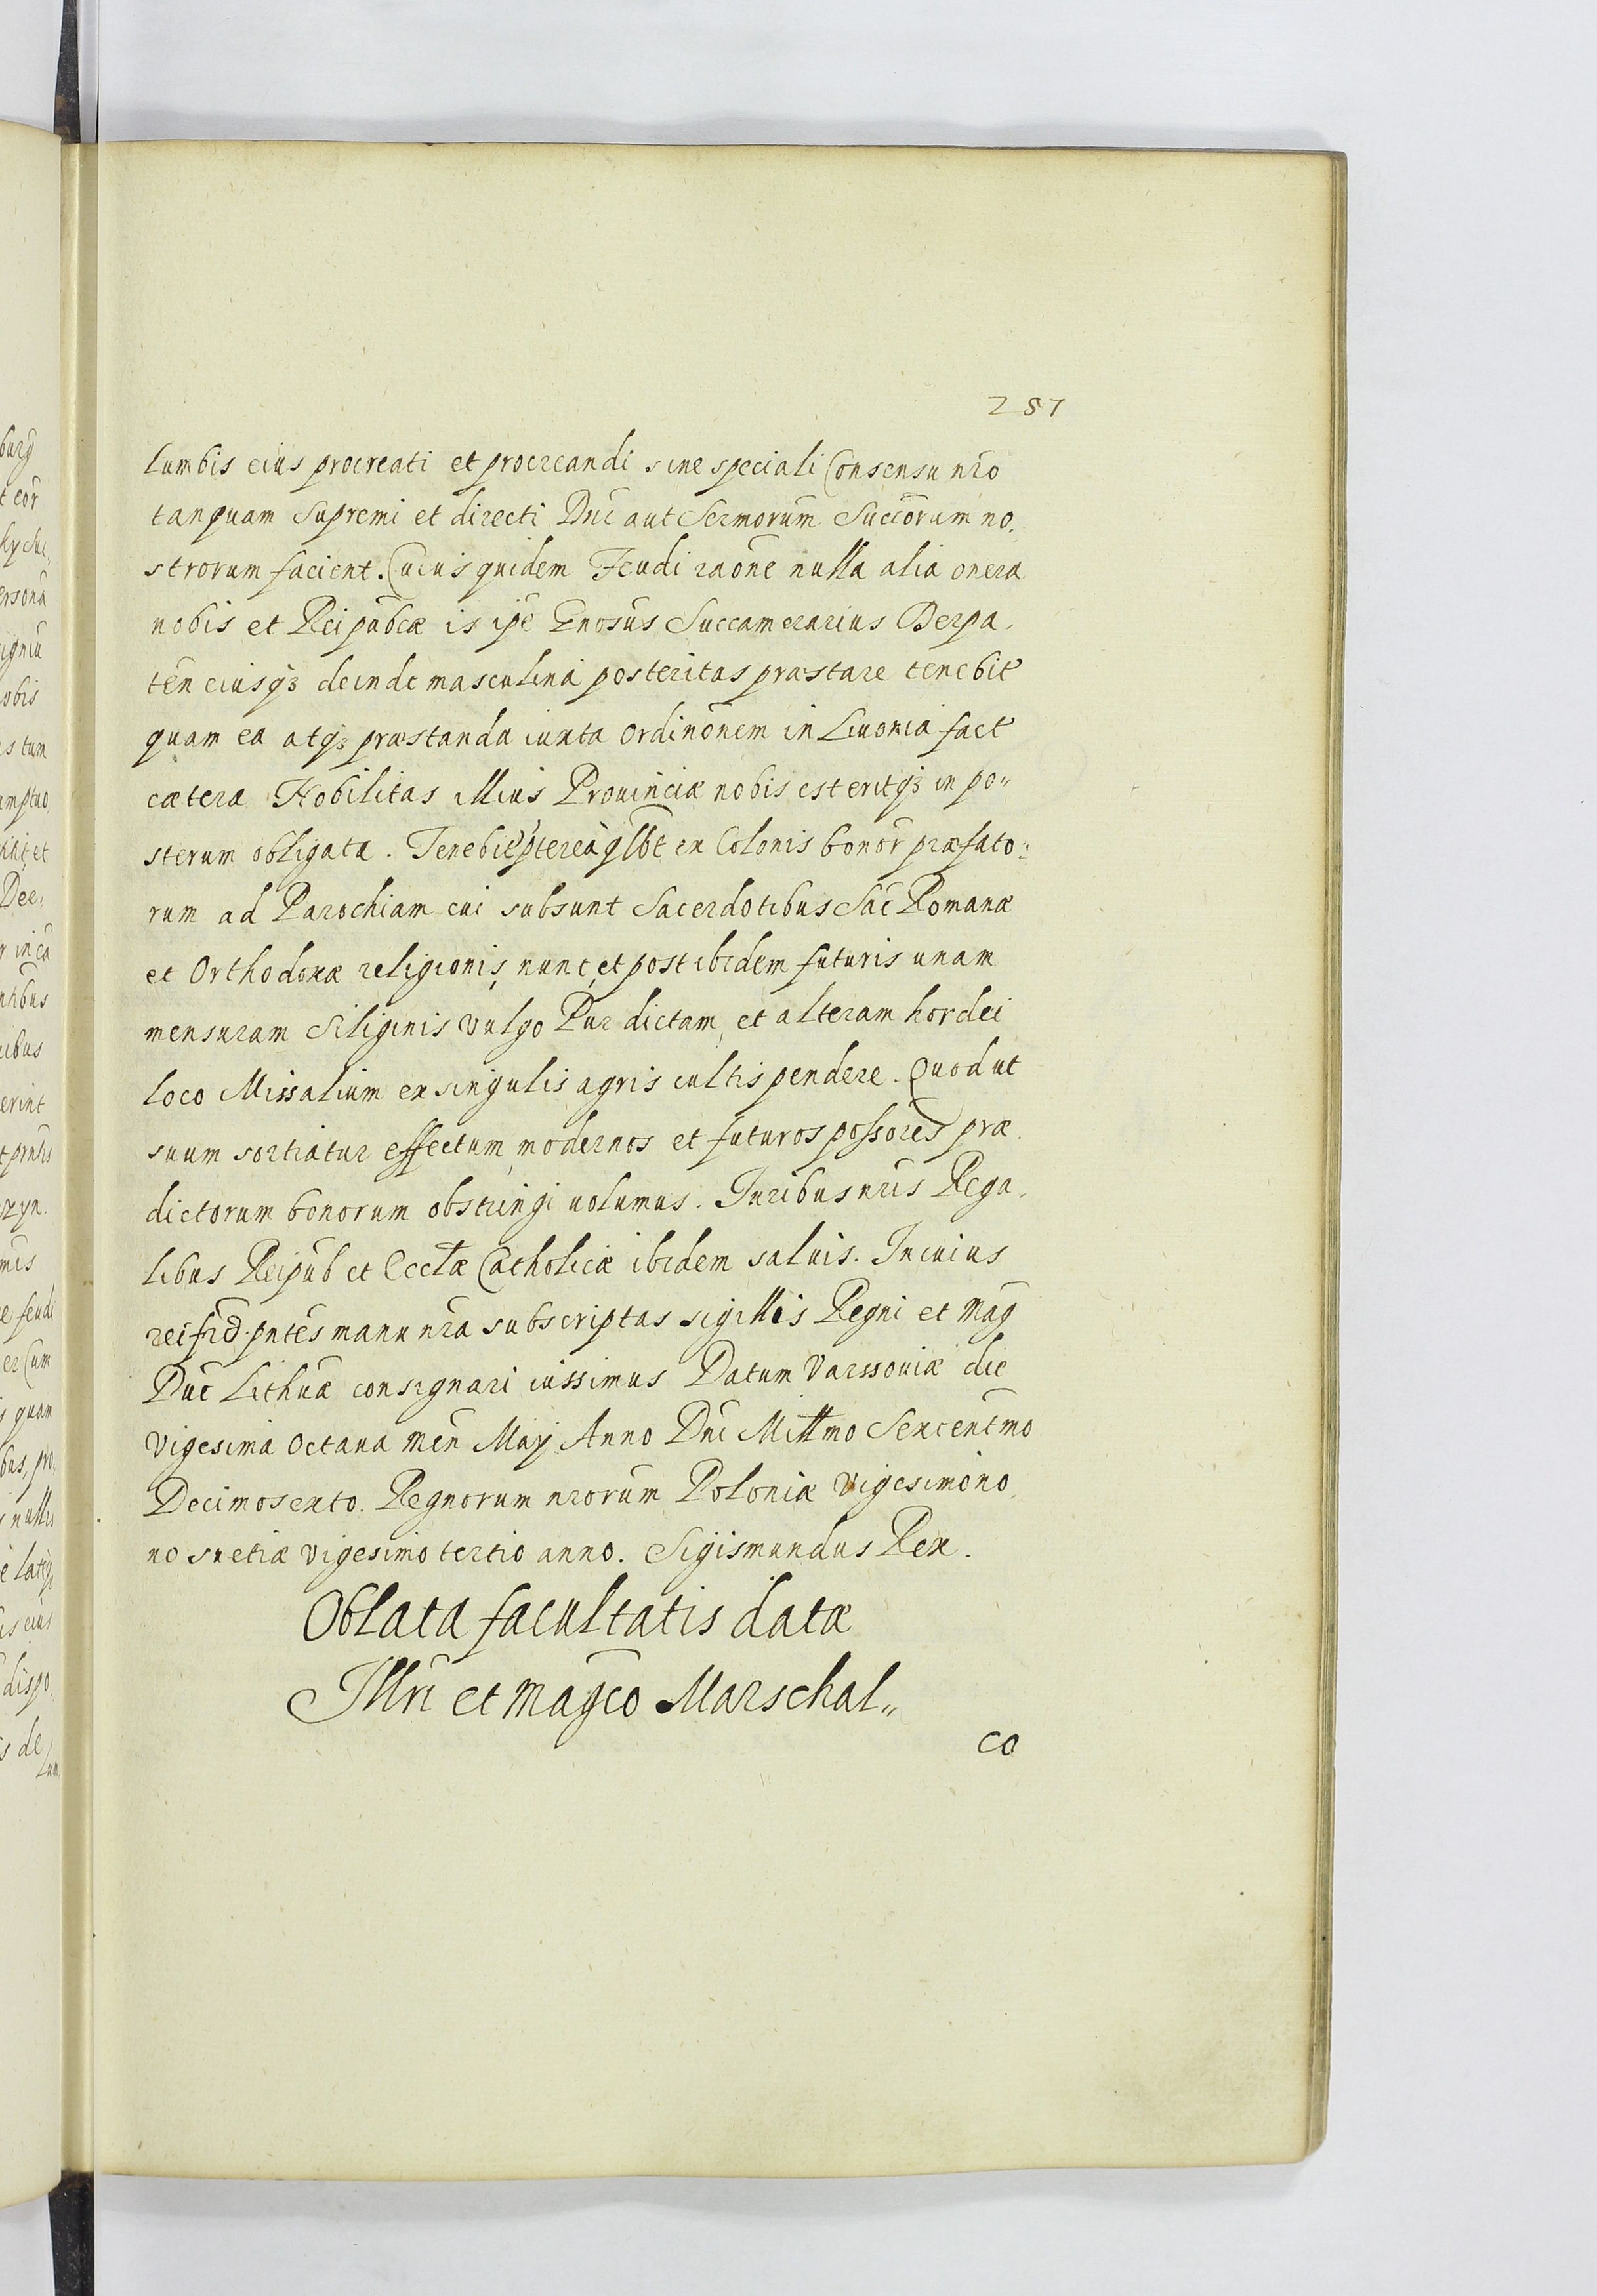 257
lumbis eius procreati et procreandi sine speciali Consensu nr̃o
tanquam Supremi et directi Dnĩ aut Sermorum Succõrum no.
strorum facient. Cuius quidem Feudi raõne nulla alia onera
nobis et Reipubcæ is ipẽ Gnosus Succamerarius Derpa.
teñ eiusqꝫ deinde masculina posteritas præstare tenebit
quam ea atqꝫ præstanda iuxta Ordinõnem in Liuonia fact
cætera Nobilitas illius Prouinciæ nobis est eritqꝫ in po„
sterum obligata. Tenebit pterea qlbt ex Colonis bonor̃ præfato:
rum ad Parochiam cui subsunt Sacerdotibus Sac̃ Romanæ
et Orthodoxæ religionis, nunc, et post ibidem futuris unam
mensuram Siliginis vulgo Pur dictam, et alteram hordei
loco Missalium ex singulis agris cultis pendere. Quod ut
suum sortiatur effectum, modernos et futuros possores præ.
dictorum bonorum obstringi uolumus. Iuribus nr̃is Rega.
libus Reipub̃ et Eccłæ Catholicæ ibidem saluis. In cuius
rei fid. pntes manu nr̃a subscriptas sigillis Regni et Mag̃
Duc̃ Lithuæ consignari iussimus Datum Varssouiæ die
vigesima Octaua Meñ Maij Anno Dnĩ Millmo Sexcentmo
Decimosexto. Regnorum nr̃orum Poloniæ Vigesimono.
no Suetiæ vigesimo tertio anno. Sigismundus Rex.
Oblata facultatis datæ
Illri et Magco Marschal„
co